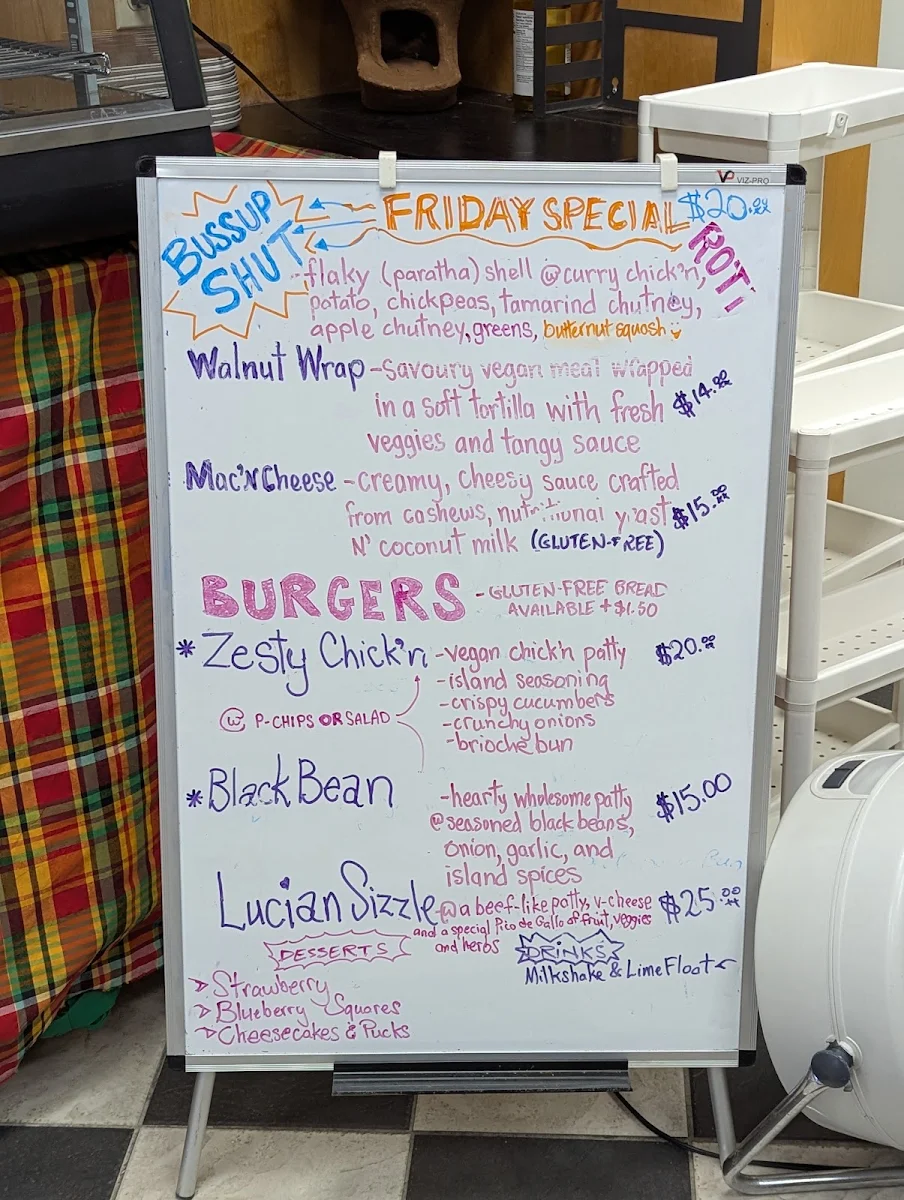 VIZ-PRO
BUSSUP SHUT FRIDAY SPECIAL $20.00
ROTI
-flaky (paratha) shell @ curry chick'n,
potato, chickpeas, tamarind chutney,
apple chutney, greens, butternut squash
Walnut Wrap -savoury vegan meat wrapped
in a soft tortilla with fresh $14.00
veggies and tangy sauce
Mac'N Cheese -creamy, cheesy sauce crafted
from cashews, nutritional yeast $15.00
N' coconut milk (GLUTEN-FREE)
BURGERS -GLUTEN-FREE BREAD
AVAILABLE +$1.50
* Zesty Chick'n -vegan chick'n patty $20.00
-island seasoning
-crispy cucumbers
w P-CHIPS OR SALAD -crunchy onions
-brioche bun
* Black Bean -hearty wholesome patty $15.00
@ seasoned black beans,
onion, garlic, and
island spices
Lucian Sizzle -@ a beef-like patty, v-cheese $25.00
and a special Pico de Gallo of fruit, veggies
and herbs
DESSERTS
> Strawberry
> Blueberry Squares
> Cheesecakes & Pucks
DRINKS
Milkshake & Lime Float